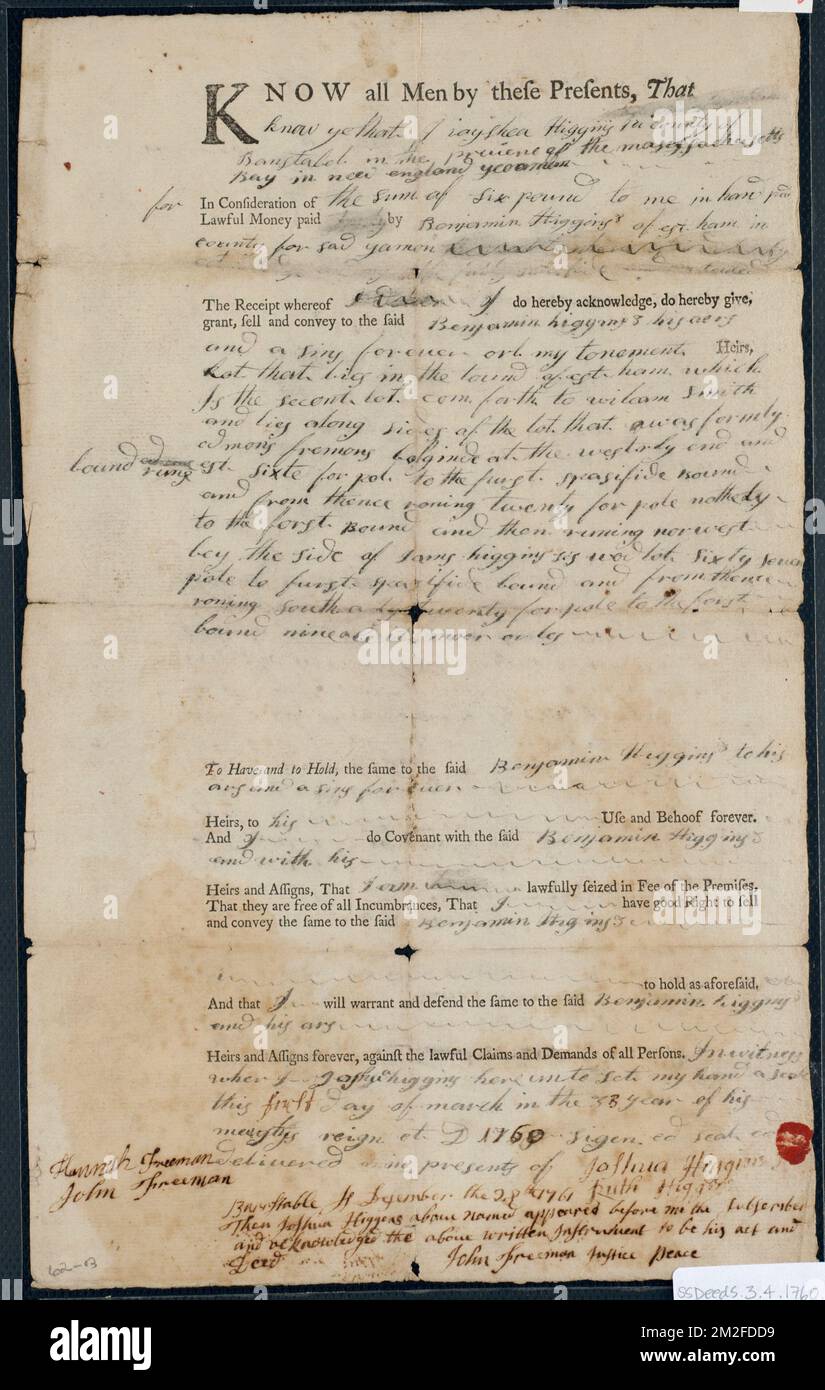 KNOW all Men by these Presents, That
know ye that I Higgins county of
Banstabel in the of the
Bay in new england yeoamen
for In Consideration of the sum of six pound to me in hand
Lawful Money paid by Benjamin Higgins of est ham in
county for sad yamon
The Receipt whereof I do hereby acknowledge, do hereby give,
grant, sell and convey to the said Benjamin higgins his aers
and a sins forever my tonement Heirs,
Lot that lies in the bound of est ham which
Is the secont lot com forth to wileam Smith
and lies along sides of the lot that was formly
fremons at the westerly end and
bound est sixte for pole to the furst spasifide Bound
and from thence roning twenty for pole
to the forst Bound and then runing norwest
bey the side of Jams higgins wod lot sixty
pole to furst spasifide bound and from thence
roning twenty for pole to the forst
bound
To Have and to Hold, the same to the said Benjamin Higgins to his
ars and a sins forever
Heirs, to his Use and Behoof forever.
And I do Covenant with the said Benjamin Higgins
and with his
Heirs and Assigns, That lawfully seized in Fee of the Premises.
That they are free of all Incumbrances, That I have good Right to sell
and convey the same to the said Benjamin Higins
to hold as aforesaid.
And that I will warrant and defend the same to the said Benjamin higgins
and his ars
Heirs and Assigns forever, against the lawful Claims and Demands of all Persons. In witness
wher I higgins here unto set my hand a
this furst day of march in the 33 year of his
reign 1760 sigen ed seal
Hannah Freeman delivered presents of Joshua Higgins
John Freeman Ruth Higgens
Barnstable, December the 28th 1761
Then Joshua Higgens above named appeared before me the subscriber
and acknowledged the above written Instrument to be his act and
Deed John Freeman Justice Peace
62-B
SSDeeds.3.4.1760
alamy
Image ID: 2M2FDD9
www.alamy.com